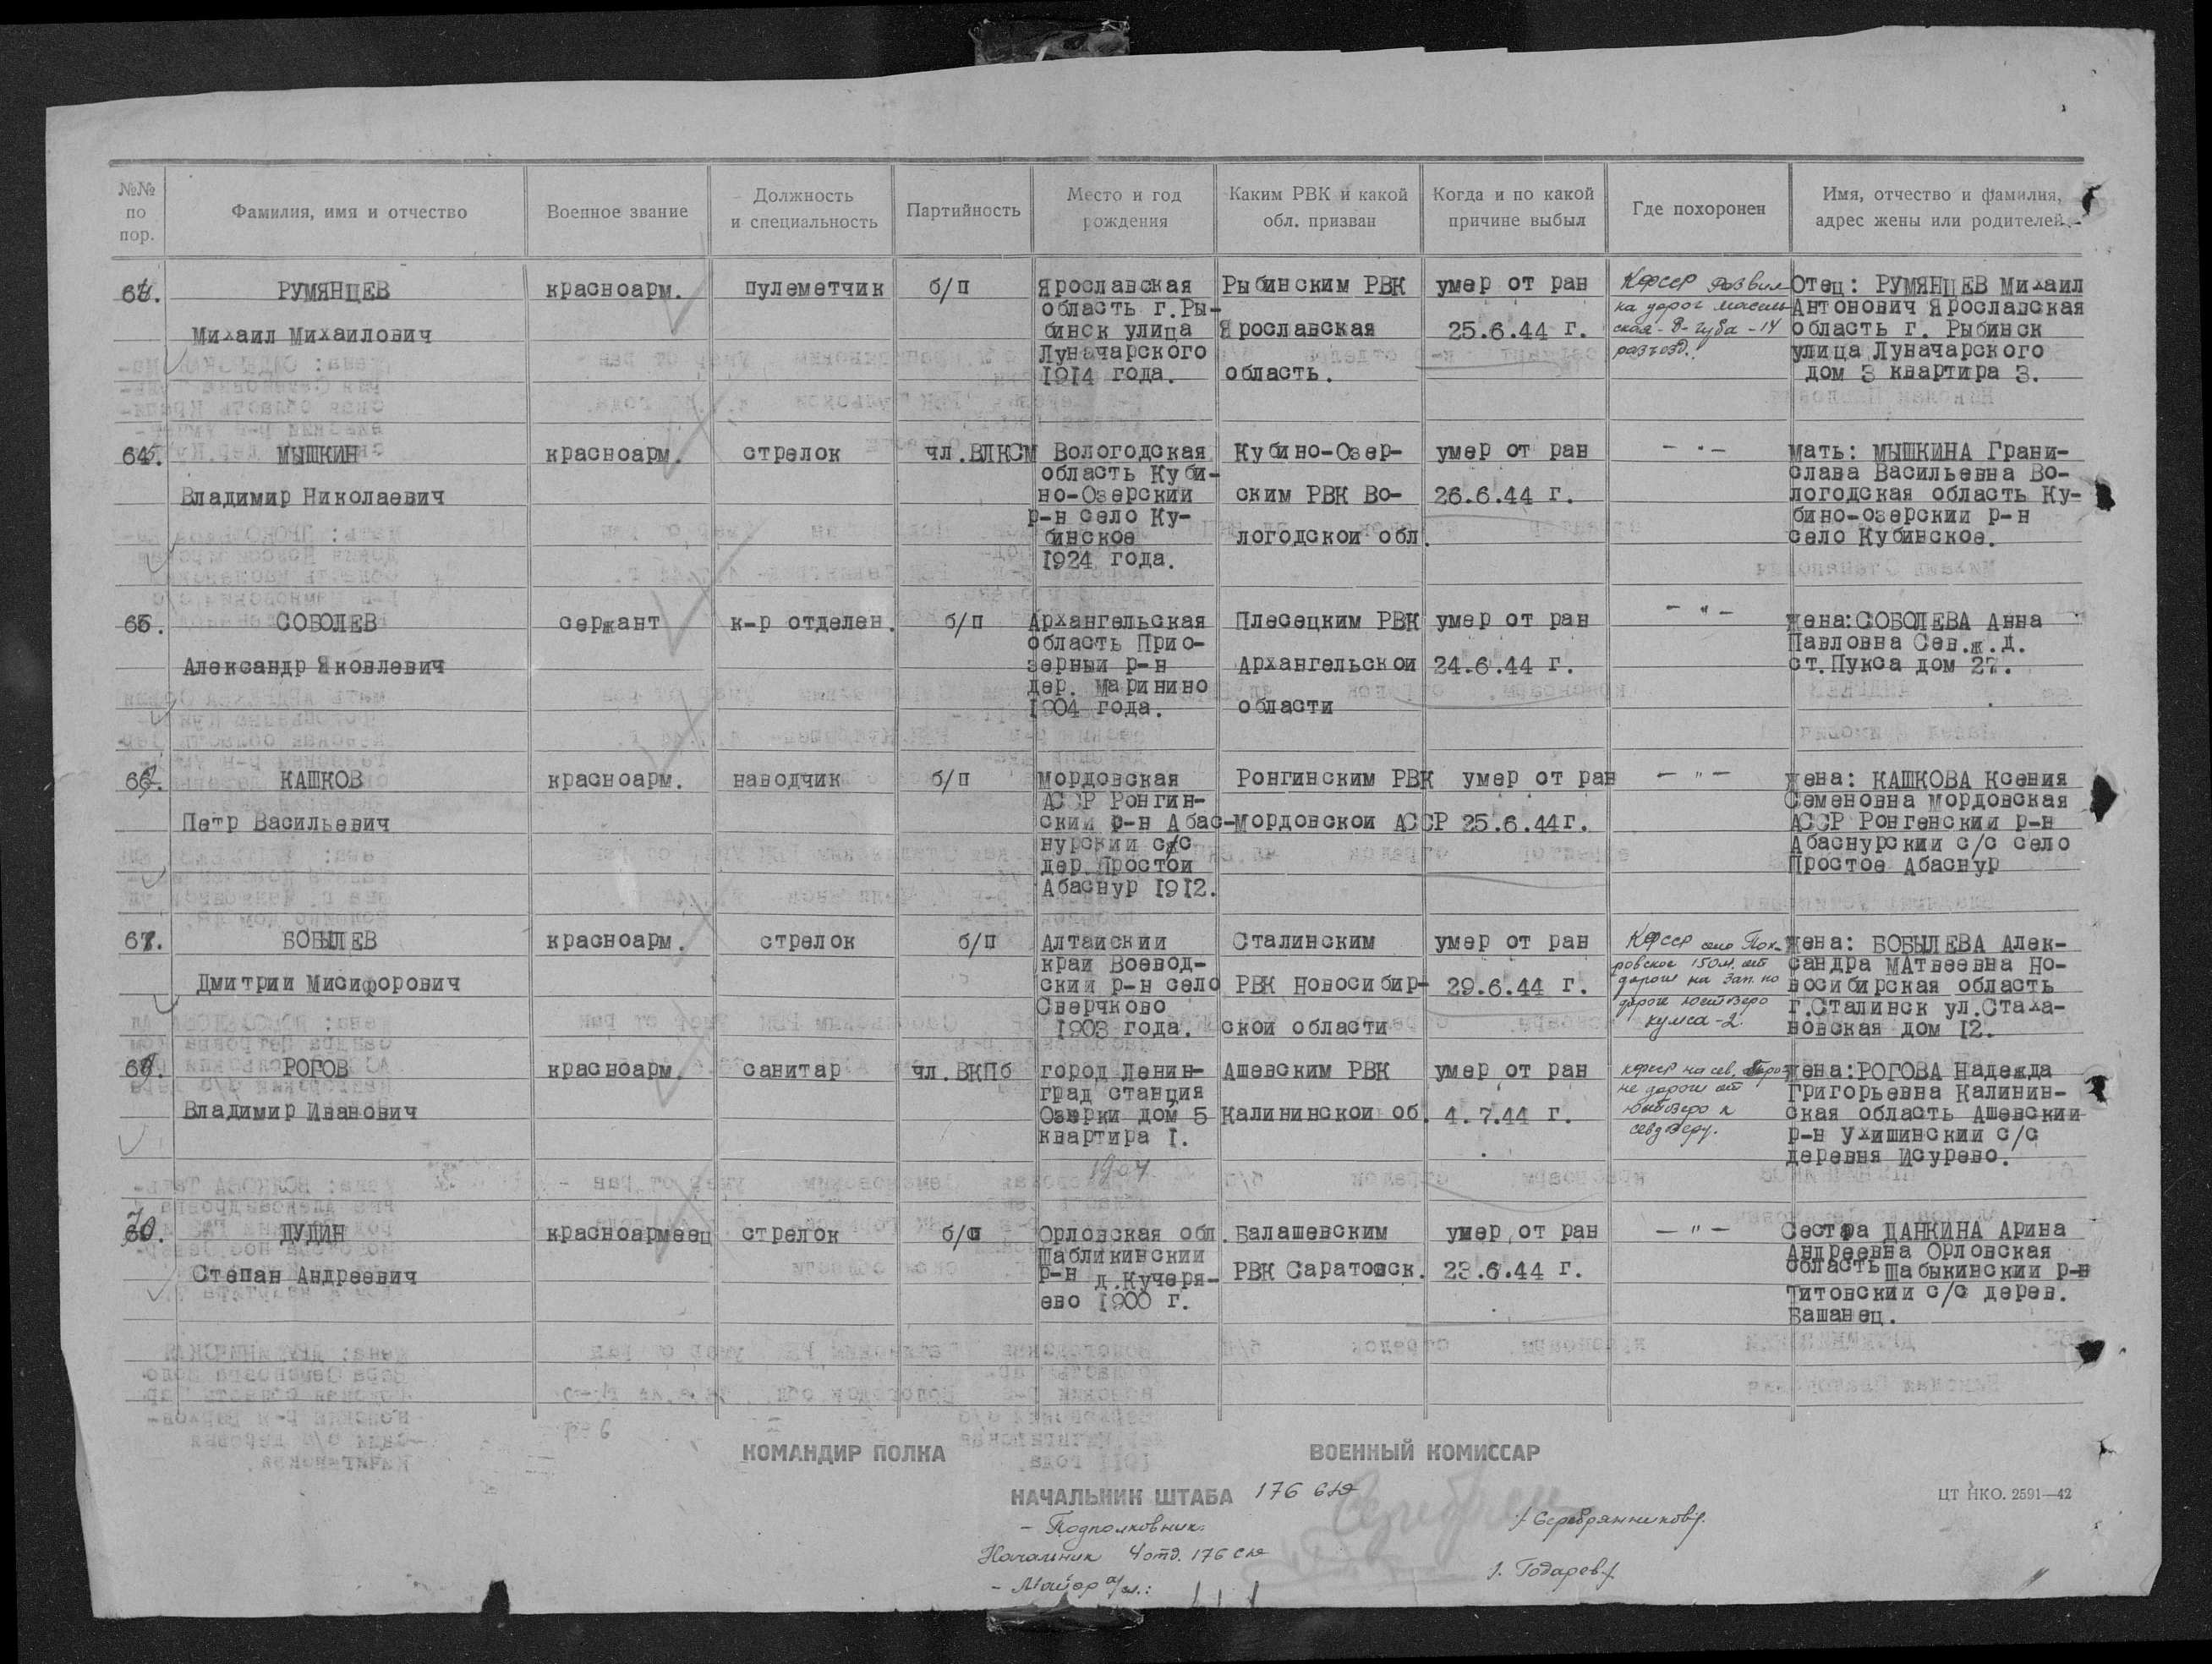 №№ по пор.
Фамилия, имя и отчество
Военное звание
Должность и специальность
Партийность
Место и год рождения
Каким РВК и какой обл. призван
Когда и по какой причине выбыл
Где похоронен
Имя, отчество и фамилия, адрес жены или родителей
РУМЯНЦЕВ
Михаил Михаилович
красноарм.
пулеметчик
б/п
Ярославская
область г.Ры-
бинск улица
Луначарского
1914 года.
Рыбинским РВК
Ярославская
область.
умер от ран
25.6.44 г.
Кфсср развил
ка дорог
ская - 8- губа - 14
разъезд.
Отец: РУМЯНЦЕВ Михаил
Антонович Ярославская
область г. Рыбинск
улица Луначарского
дом 3 квартира 3.
МЫШКИН
Владимир Николаевич
красноарм.
стрелок
чл.ВЛКСМ
Вологодская
область Куби-
но-Озерский
р-н село Ку-
бинское
1924 года.
Кубино-Озер-
ским РВК Во-
логодской обл.
умер от ран
26.6.44 г.
- " -
мать: МЫШКИНА Грани-
слава Васильевна Во-
логодская область Ку-
бино-озерский р-н
село Кубинское.
СОБОЛЕВ
Александр Яковлевич
сержант
к-р отделен.
б/п
Архангельская
область Прио-
зерный р-н
дер. Маринино
1904 года.
Плесецким РВК
Архангельской
области
умер от ран
24.6.44 г.
- " -
жена:СОБОЛЕВА Анна
Павловна Сев.ж.д.
ст.Пукса дом 27.
КАШКОВ
Петр Васильевич
красноарм.
наводчик
б/п
мордовская
АССР Ронгин-
ский р-н Абас-
нурский с/с
дер.Простой
Абаснур 1912.
Ронгинским РВК
мордовской АССР
умер от ран
25.6.44г.
- " -
жена: КАШКОВА Ксения
Семеновна мордовская
АССР Ронгенский р-н
Абаснурский с/с село
Простое Абаснур
67.
БОБЫЛЕВ
Дмитрий Мисифорович
красноарм.
стрелок
б/п
Алтайский
край Воевод-
ский р-н село
Сверчково
1903 года.
Сталинским
РВК Новосибир-
ской области
умер от ран
29.6.44 г.
Кфсср село Пок-
ровское 150м. от
дороги на Зап. по
дороге
кумса-2.
жена: БОБЫЛЕВА Алек-
сандра МАтвеевна Но-
восибирская область
г.Сталинск ул.Стаха-
новская дом 12.
РОГОВ
Владимир Иванович
красноарм.
санитар
чл.ВКПб
город Ленин-
град станция
Озерки дом 5
квартира 1.
1904
Ашевским РВК
Калининской об.
умер от ран
4.7.44 г.
кфсср на сев.
не дороги от
жена:РОГОВА Надежда
Григорьевна Калинин-
ская область Ашевский
р-н Ухишинский с/с
деревня Исурево.
ДУДИН
Степан Андреевич
красноармеец
стрелок
б/п
Орловская обл.
Шабликинский
р-н д.Кучеря-
ево 1900 г.
Балашевским
РВК Саратовск.
умер от ран
23.6.44 г.
- " -
Сестра ЦАНКИНА Арина
Андреевна Орловская
область Шабыкинский р-н
Титовский с/с дерев.
Башанец.
КОМАНДИР ПОЛКА
ВОЕННЫЙ КОМИССАР
НАЧАЛЬНИК ШТАБА 176 сд
- Подполковник:
/Серебрянников/.
ЦТ НКО. 2591—42
Начальник 4отд. 176 сд
- Майор а/сл.:
/. Годарев/.